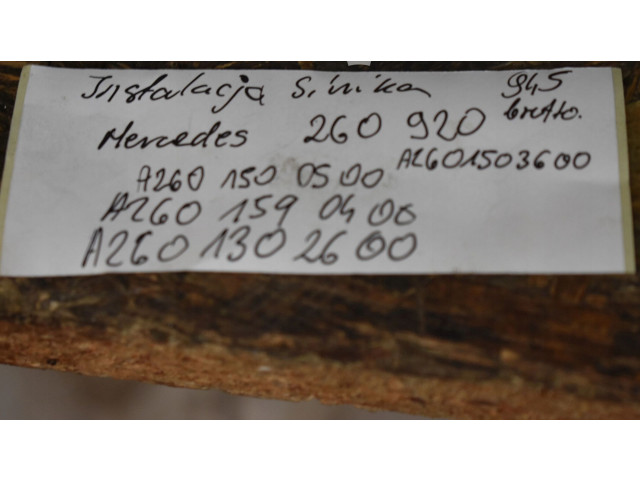 Instalacja Silnika 945
brutto.
Mercedes 260 920
A2601503600
A260 150 0500
A260 159 0400
A260 130 2600